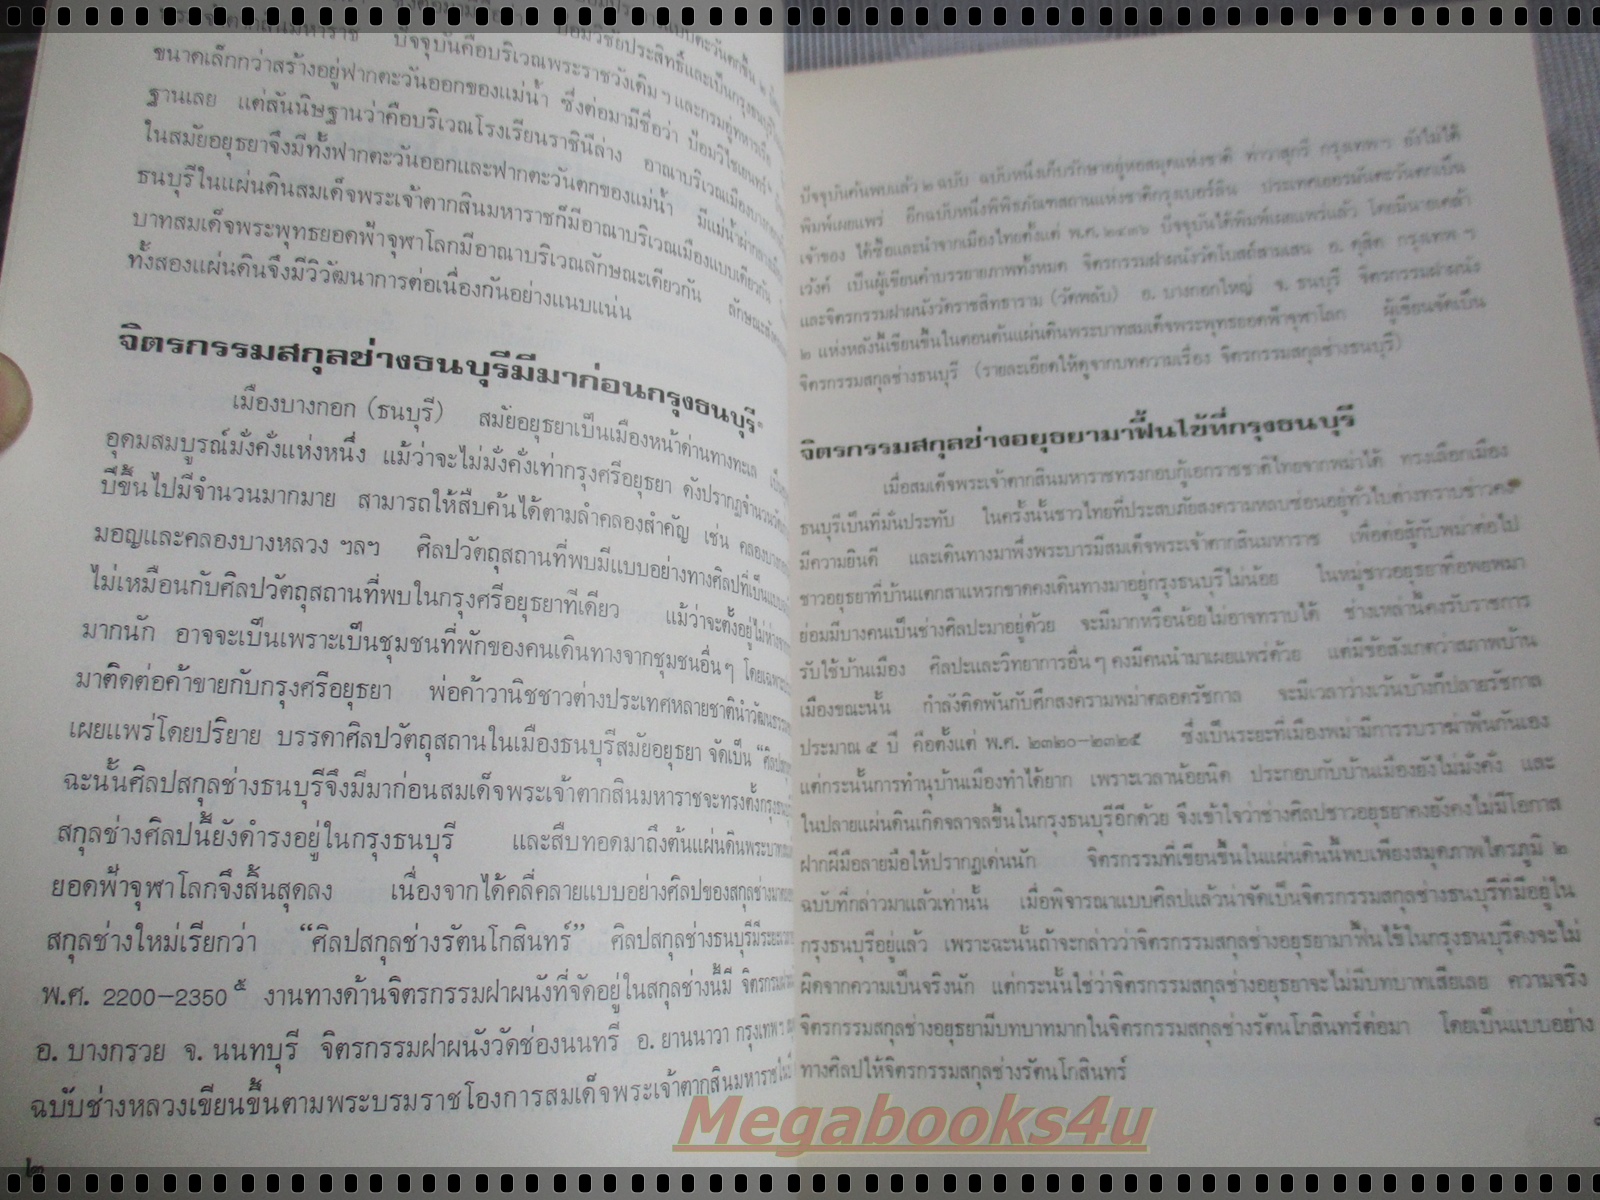 พระเจ้าตากสินมหาราช ปัจจุบันคือบริเวณพระราชวังเดิมฯ และกรมอู่ทหารเรือ
ขนาดเล็กกว่าสร้างอยู่ฟากตะวันออกของแม่น้ำ ซึ่งต่อมามีชื่อว่า ป้อมวิไชเยนทร์
ฐานเลย แต่สันนิษฐานว่าคือบริเวณโรงเรียนราชินีล่าง อาณาบริเวณเมืองบางกอก
ในสมัยอยุธยาจึงมีทั้งฟากตะวันออกและฟากตะวันตกของแม่น้ำ มีแม่น้ำผ่ากลางเมือง
ธนบุรีในแผ่นดินสมเด็จพระเจ้าตากสินมหาราชก็มีอาณาบริเวณเมืองแบบเดียวกัน
บาทสมเด็จพระพุทธยอดฟ้าจุฬาโลกมีอาณาบริเวณลักษณะเดียวกัน ลักษณะ
ทั้งสองแผ่นดินจึงมีวิวัฒนาการต่อเนื่องกันอย่างแนบแน่น
จิตรกรรมสกุลช่างธนบุรีมีมาก่อนกรุงธนบุรี
เมืองบางกอก (ธนบุรี) สมัยอยุธยาเป็นเมืองหน้าด่านทางทะเล
อุดมสมบูรณ์มั่งคั่งแห่งหนึ่ง แม้ว่าจะไม่มั่งคั่งเท่ากรุงศรีอยุธยา ดังปรากฏจำนวนวัด
บีขึ้นไปมีจำนวนมากมาย สามารถให้สืบค้นได้ตามลำคลองสำคัญ เช่น คลองบาง
มอญและคลองบางหลวง ฯลฯ ศิลปวัตถุสถานที่พบมีแบบอย่างทางศิลปที่เป็นแบบ
ไม่เหมือนกับศิลปวัตถุสถานที่พบในกรุงศรีอยุธยาทีเดียว แม้ว่าจะตั้งอยู่ไม่ห่าง
มากนัก อาจจะเป็นเพราะเป็นชุมชนที่พักของคนเดินทางจากชุมชนอื่นๆ โดยเฉพาะ
มาติดต่อค้าขายกับกรุงศรีอยุธยา พ่อค้าวานิชชาวต่างประเทศหลายชาตินำวัฒนธรรม
เผยแพร่โดยปริยาย บรรดาศิลปวัตถุสถานในเมืองธนบุรีสมัยอยุธยา จัดเป็น “ศิลป
ฉะนั้นศิลปสกุลช่างธนบุรีจึงมีมาก่อนสมเด็จพระเจ้าตากสินมหาราชจะทรงตั้งกรุงธนบุรี
สกุลช่างศิลปนี้ยังดำรงอยู่ในกรุงธนบุรี และสืบทอดมาถึงต้นแผ่นดินพระบาท
ยอดฟ้าจุฬาโลกจึงสิ้นสุดลง เนื่องจากได้คลี่คลายแบบอย่างศิลปของสกุลช่างมา
สกุลช่างใหม่เรียกว่า “ศิลปสกุลช่างรัตนโกสินทร์” ศิลปสกุลช่างธนบุรีมีระยะ
พ.ศ. 2200-2350 ๕ งานทางด้านจิตรกรรมฝาผนังที่จัดอยู่ในสกุลช่างนี้มี จิตรกรรม
อ. บางกรวย จ. นนทบุรี จิตรกรรมฝาผนังวัดช่องนนทรี อ. ยานนาวา กรุงเทพฯ
ฉบับช่างหลวงเขียนขึ้นตามพระบรมราชโองการสมเด็จพระเจ้าตากสินมหาราช
๒
ปัจจุบันค้นพบแล้ว ๒ ฉบับ ฉบับหนึ่งเก็บรักษาอยู่หอสมุดแห่งชาติ ท่าวาสุกรี กรุงเทพฯ ยังไม่ได้
พิมพ์เผยแพร่ อีกฉบับหนึ่งพิพิธภัณฑสถานแห่งชาติกรุงเบอร์ลิน ประเทศเยอรมันตะวันตกเป็น
เจ้าของ ได้ซื้อและนำจากเมืองไทยตั้งแต่ พ.ศ. ๒๔๓๖ ปัจจุบันได้พิมพ์เผยแพร่แล้ว โดยมีนายเคล้า
เว้งค์ เป็นผู้เขียนคำบรรยายภาพทั้งหมด จิตรกรรมฝาผนังวัดโบสถ์สามเสน อ. ดุสิต กรุงเทพฯ
และจิตรกรรมฝาผนังวัดราชสิทธาราม (วัดพลับ) อ. บางกอกใหญ่ จ. ธนบุรี จิตรกรรมฝาผนัง
๒ แห่งหลังนี้เขียนขึ้นในตอนต้นแผ่นดินพระบาทสมเด็จพระพุทธยอดฟ้าจุฬาโลก ผู้เขียนจัดเป็น
จิตรกรรมสกุลช่างธนบุรี (รายละเอียดให้ดูจากบทความเรื่อง จิตรกรรมสกุลช่างธนบุรี)
จิตรกรรมสกุลช่างอยุธยามาฟื้นไข้ที่กรุงธนบุรี
เมื่อสมเด็จพระเจ้าตากสินมหาราชทรงกอบกู้เอกราชชาติไทยจากพม่าได้ ทรงเลือกเมือง
ธนบุรีเป็นที่มั่นประทับ ในครั้งนั้นชาวไทยที่ประสบภัยสงครามหลบซ่อนอยู่ทั่วไปต่างทราบข่าวคง
มีความยินดี และเดินทางมาพึ่งพระบารมีสมเด็จพระเจ้าตากสินมหาราช เพื่อต่อสู้กับพม่าต่อไป
ชาวอยุธยาที่บ้านแตกสาแหรกขาดคงเดินทางมาอยู่กรุงธนบุรีไม่น้อย ในหมู่ชาวอยุธยาที่อพยพมา
ย่อมมีบางคนเป็นช่างศิลปะมาอยู่ด้วย จะมีมากหรือน้อยไม่อาจทราบได้ ช่างเหล่านี้คงรับราชการ
รับใช้บ้านเมือง ศิลปะและวิทยาการอื่นๆ คงมีคนนำมาเผยแพร่ด้วย แต่มีข้อสังเกตว่าสภาพบ้าน
เมืองขณะนั้น กำลังติดพันกับศึกสงครามพม่าตลอดรัชกาล จะมีเวลาว่างเว้นบ้างก็ปลายรัชกาล
ประมาณ ๕ ปี คือตั้งแต่ พ.ศ. ๒๓๒๐-๒๓๒๕ ซึ่งเป็นระยะที่เมืองพม่ามีการรบราฆ่าฟันกันเอง
แต่กระนั้นการทำนุบ้านเมืองทำได้ยาก เพราะเวลาน้อยนิด ประกอบกับบ้านเมืองยังไม่มั่งคั่ง และ
ในปลายแผ่นดินเกิดจลาจลขึ้นในกรุงธนบุรีอีกด้วย จึงเข้าใจว่าช่างศิลปชาวอยุธยาคงยังคงไม่มีโอกาส
ฝากฝีมือลายมือให้ปรากฏเด่นนัก จิตรกรรมที่เขียนขึ้นในแผ่นดินนี้พบเพียงสมุดภาพไตรภูมิ ๒
ฉบับที่กล่าวมาแล้วเท่านั้น เมื่อพิจารณาแบบศิลปแล้วน่าจัดเป็นจิตรกรรมสกุลช่างธนบุรีที่มีอยู่ใน
กรุงธนบุรีอยู่แล้ว เพราะฉะนั้นถ้าจะกล่าวว่าจิตรกรรมสกุลช่างอยุธยามาฟื้นไข้ในกรุงธนบุรีคงจะไม่
ผิดจากความเป็นจริงนัก แต่กระนั้นใช่ว่าจิตรกรรมสกุลช่างอยุธยาจะไม่มีบทบาทเสียเลย ความจริง
จิตรกรรมสกุลช่างอยุธยามีบทบาทมากในจิตรกรรมสกุลช่างรัตนโกสินทร์ต่อมา โดยเป็นแบบอย่าง
ทางศิลปให้จิตรกรรมสกุลช่างรัตนโกสินทร์
Megabooks4u